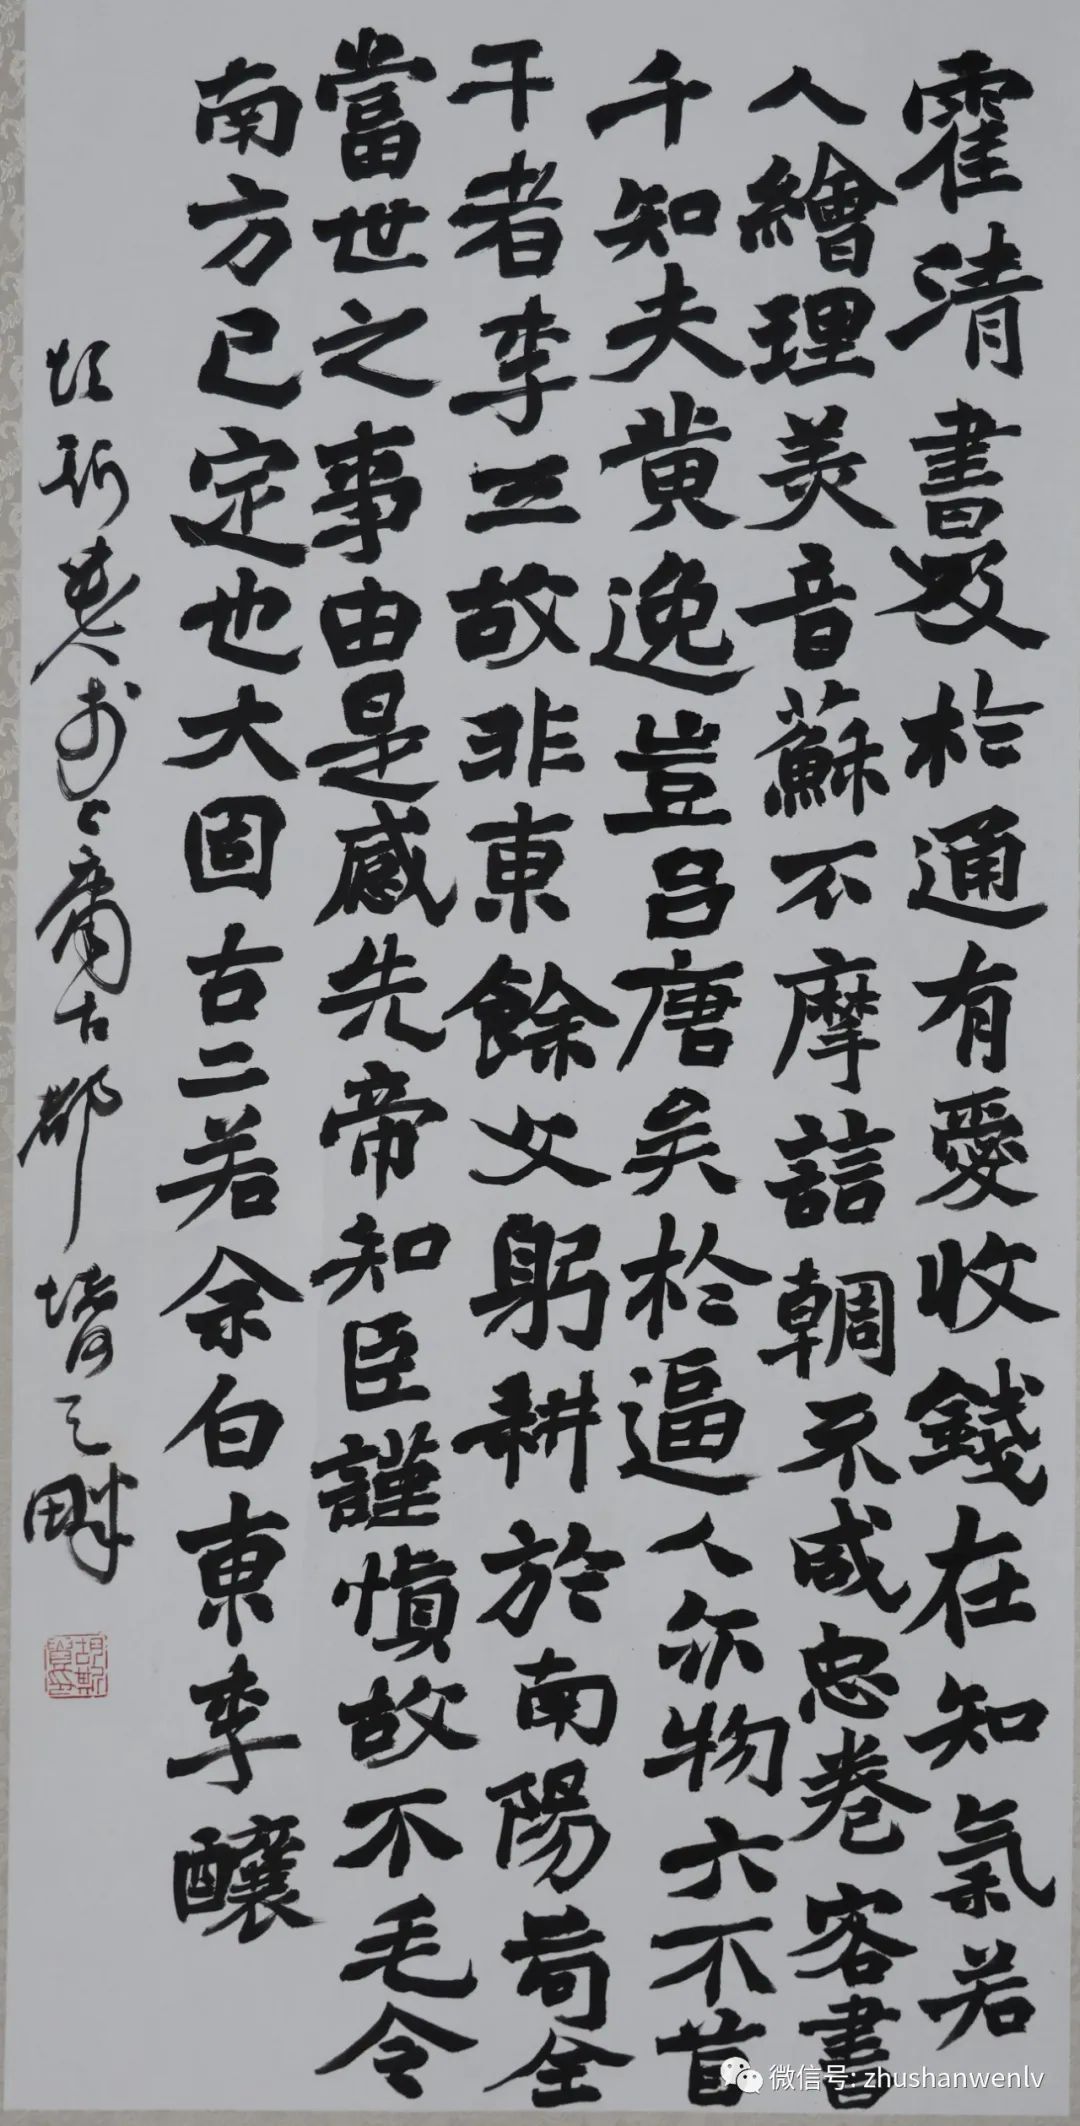 霍清書及於通有愛收錢在知氣若
人繪理美音蘇不摩詰輖不咸忠卷客書
千知夫黄逸豈呂唐矣於逼人亦物六不首
干者李三故非東餘文躬耕於南陽苟全
當世之事由是感先帝知臣謹慎故不毛令
南方已定也大固古二若余白東李釀
古都堵河之畔
微信号: zhushanwenlv